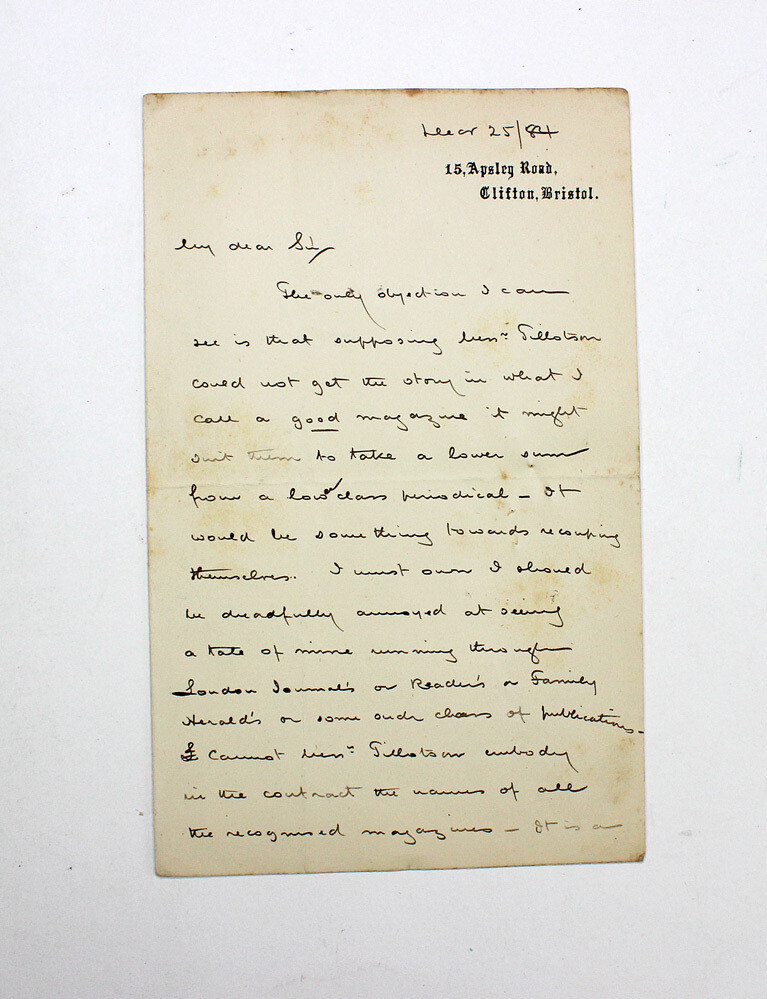 Decr 25/84
15, Apsley Road,
Clifton, Bristol.
My dear Sir
The only objection I can
see is that supposing Messrs Tillotson
could not get the story in what I
call a good magazine it might
suit them to take a lower sum
from a lower class periodical – It
would be something towards recouping
themselves. I must own I should
be dreadfully annoyed at seeing
a tale of mine running through
London Journal's or Reader's or Family
Herald's or some such class of publications –
Cannot Messrs Tillotson embody
in the contract the names of all
the recognised magazines – It is a